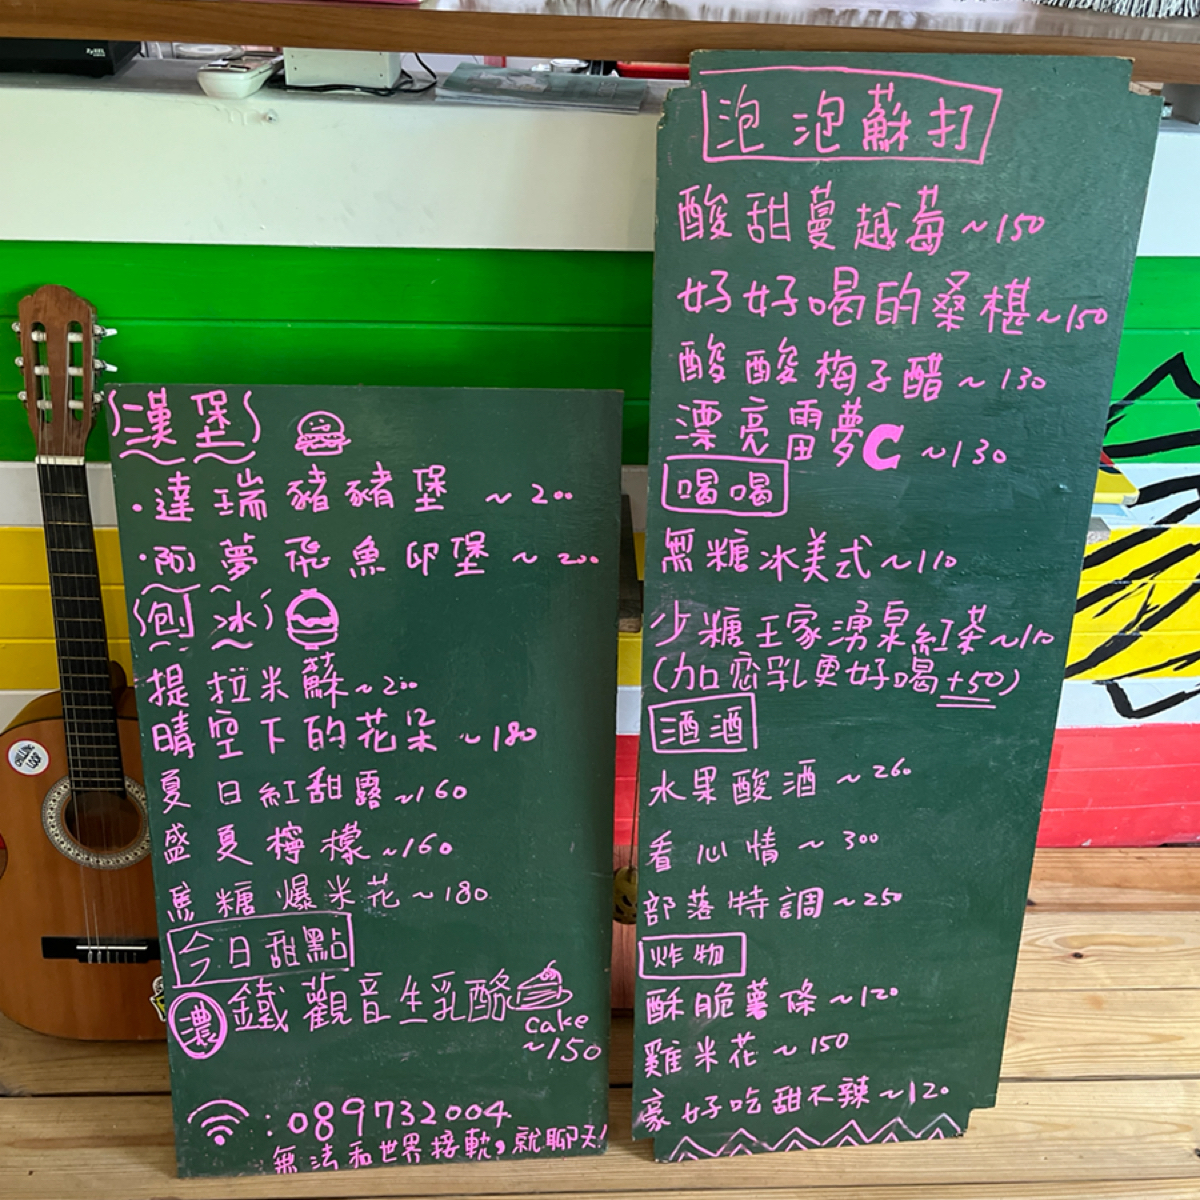 漢堡
·達瑞豬豬堡 ~200
·阿夢飛魚卵堡 ~200
刨冰
提拉米蘇~200
晴空下的花朵 ~180
夏日紅甜露~160
盛夏檸檬~160
焦糖爆米花~180
今日甜點
濃 鐵觀音生乳酪
cake
~150
:089732004
無法和世界接軌,就聊天!
泡泡蘇打
酸甜蔓越莓~150
好好喝的桑椹~150
酸酸梅子醋~130
漂亮雷夢C ~130
喝喝
無糖冰美式~110
少糖王家湧泉紅茶~110
(加密乳更好喝+50)
酒酒
水果酸酒~260
看心情~300
部落特調~250
炸物
酥脆薯條~120
雞米花~150
豪好吃甜不辣~120
CHILLING LOOP
ZyXEL